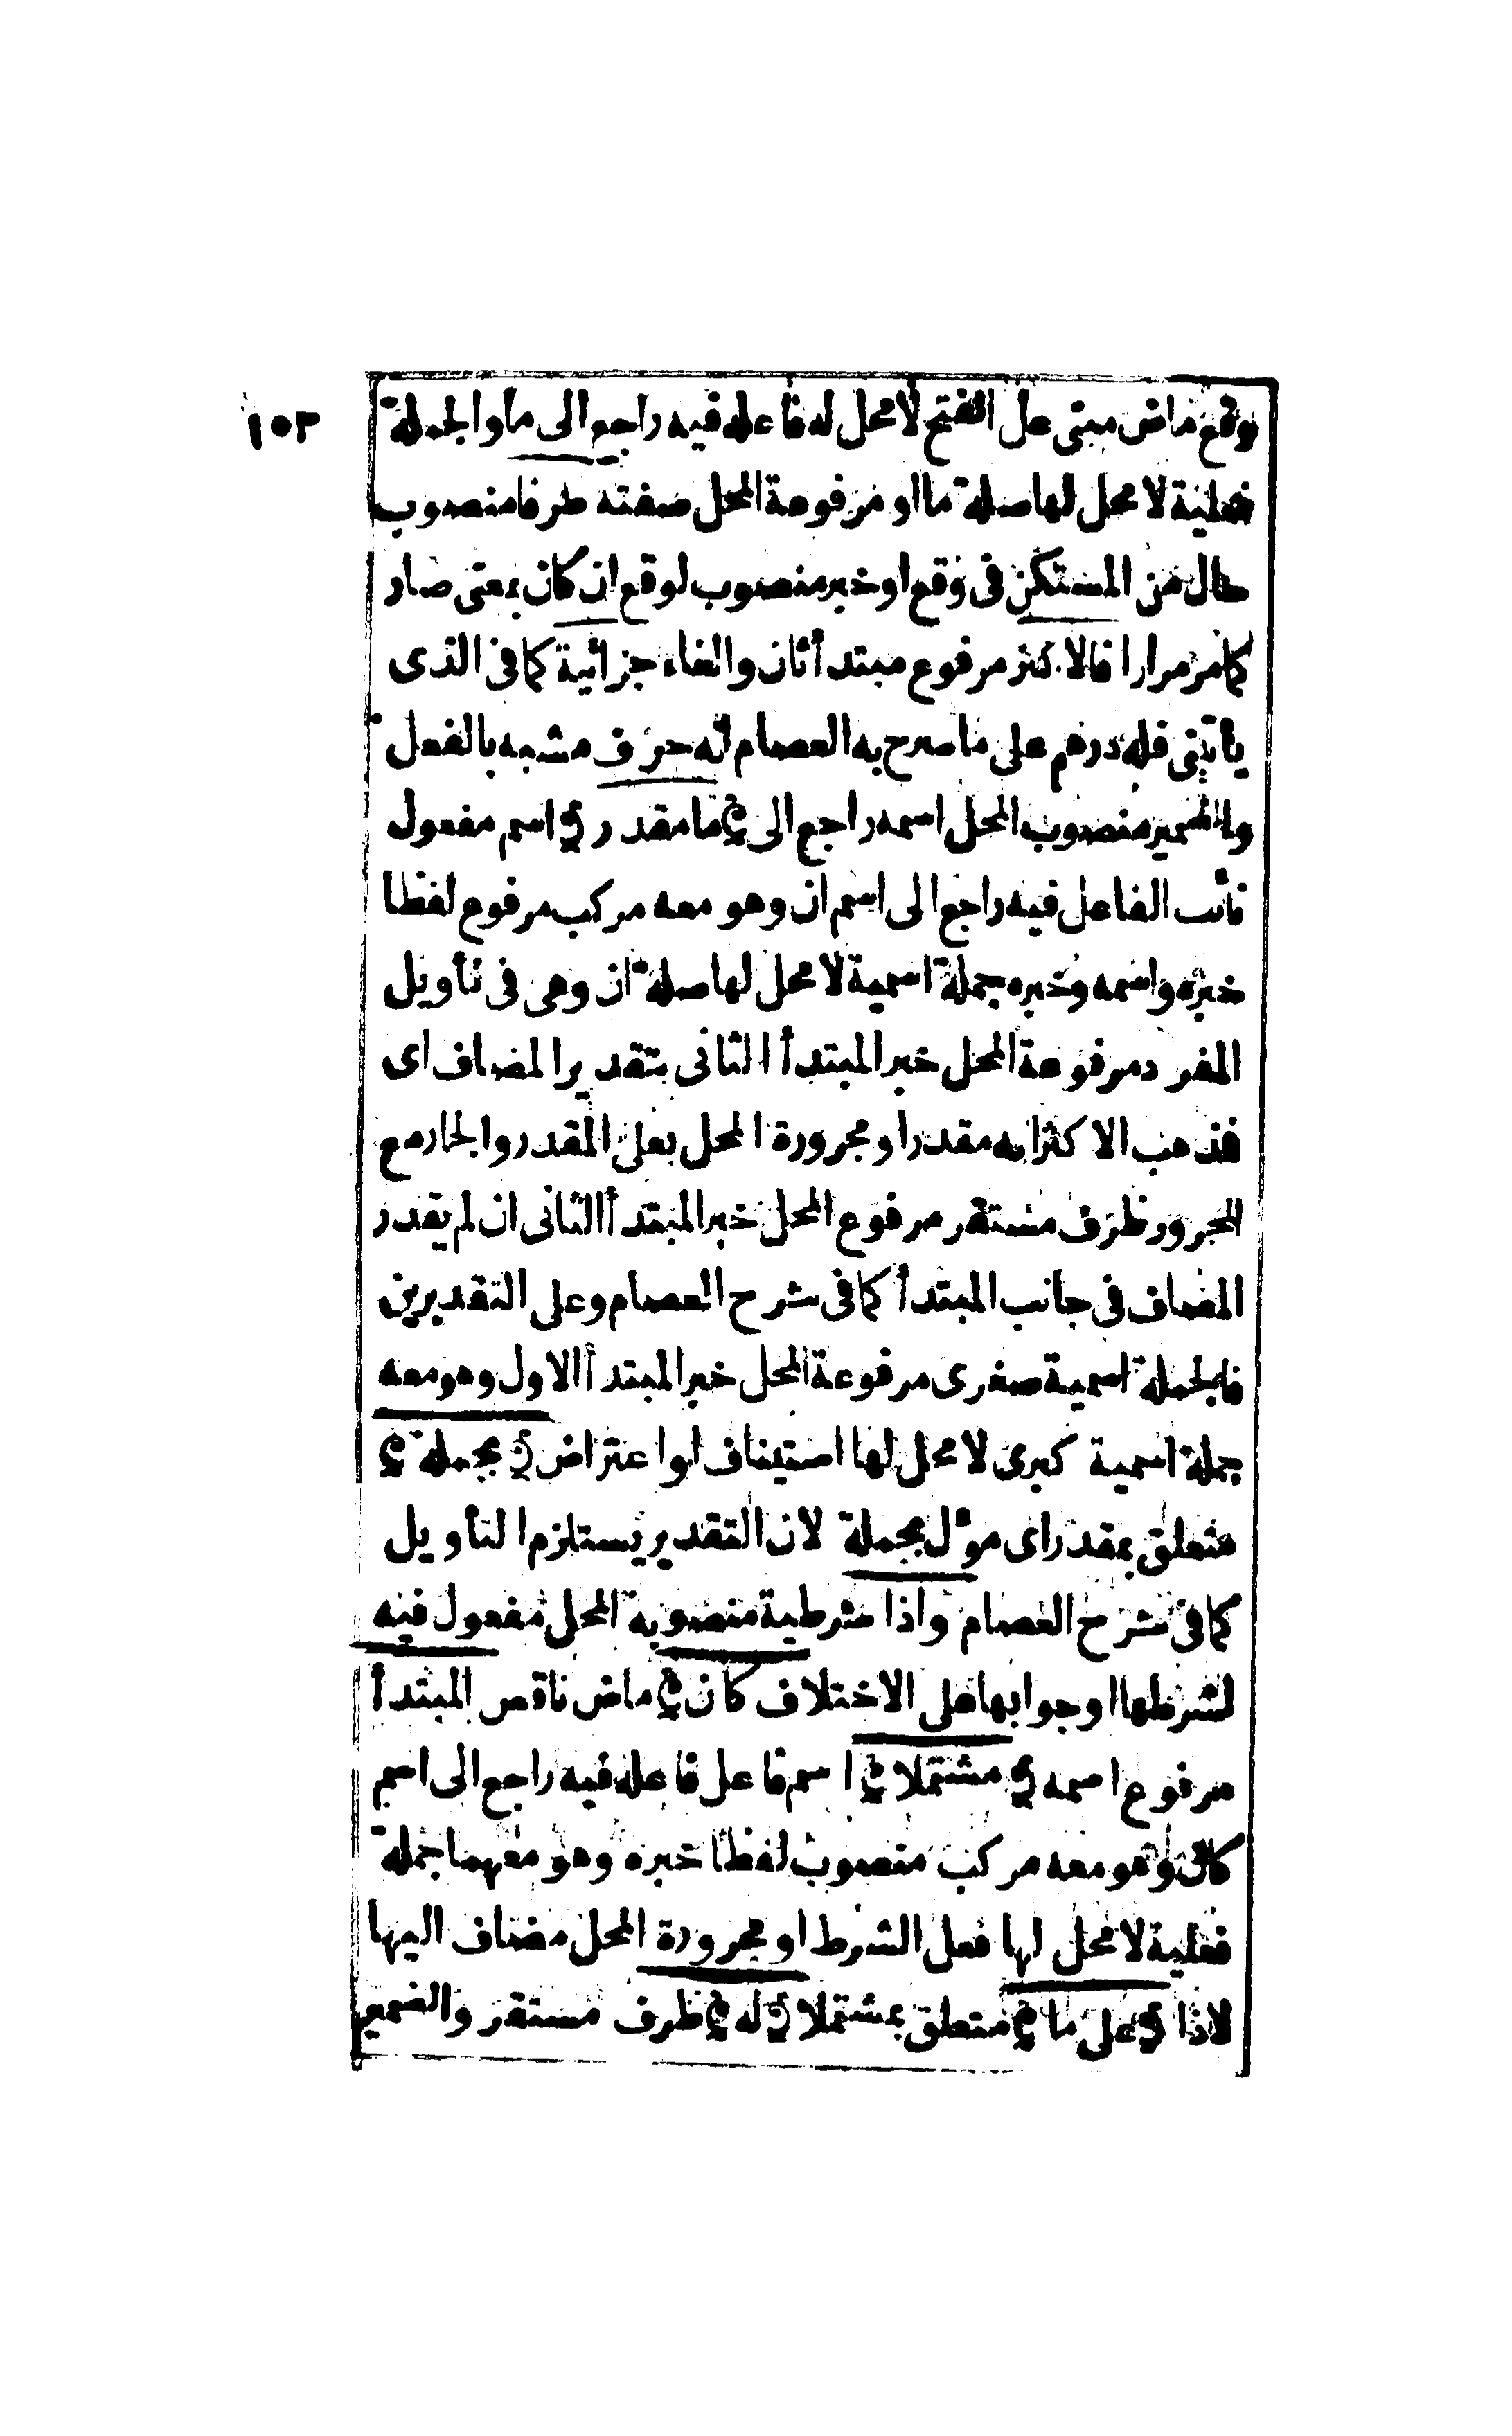 ١٥٣
وقع ماض مبنى على الفتح لا محل له فاعله فيه راجع الى ما والجملة
فعلية لا محل لها صلة ما او مرفوعة المحل صفته ظرفا منصوب
حال من المستكن فى وقع او خبر منصوب لوقع ان كان بمعنى صار
كما مر مرارا فالاكثر مرفوع مبتدأ ثان والفاء جزائية كما فى الذى
يأتينى فله درهم على ما صرح به العصام انه حرف مشبه بالفعل
والضمير منصوب المحل اسمه راجع الى ما مقدر اسم مفعول
نائب الفاعل فيه راجع الى اسم ان وهو معه مركب مرفوع لفظا
خبره واسمه وخبره جملة اسمية لا محل لها صلة ان وهى فى تأويل
المفرد مرفوعة المحل خبر المبتدأ الثانى بتقدير المضاف اى
فذهب الاكثر انه مقدر او مجرورة المحل بعلى المقدر والجار مع
المجرور ظرف مستقر مرفوع المحل خبر المبتدأ الثانى ان لم يقدر
المضاف فى جانب المبتدأ كما فى شرح العصام وعلى التقديرين
فالجملة اسمية صغرى مرفوعة المحل خبر المبتدأ الاول وهو معه
جملة اسمية كبرى لا محل لها استيناف او اعتراض بجملة
متعلق بمقدر اى مؤل بجملة لان التقدير يستلزم التأويل
كما فى شرح العصام واذا شرطية منصوبة المحل مفعول فيه
لشرطها او جوابها على الاختلاف كان ماض ناقص المبتدأ
مرفوع اسمه مشتملا اسم فاعل فاعله فيه راجع الى اسم
كان وهو معه مركب منصوب لفظا خبره وهو معهما جملة
فعلية لا محل لها فعل الشرط او مجرورة المحل مضاف اليها
لاذا على ما متعلق بمشتملا له ظرف مستقر والضمير